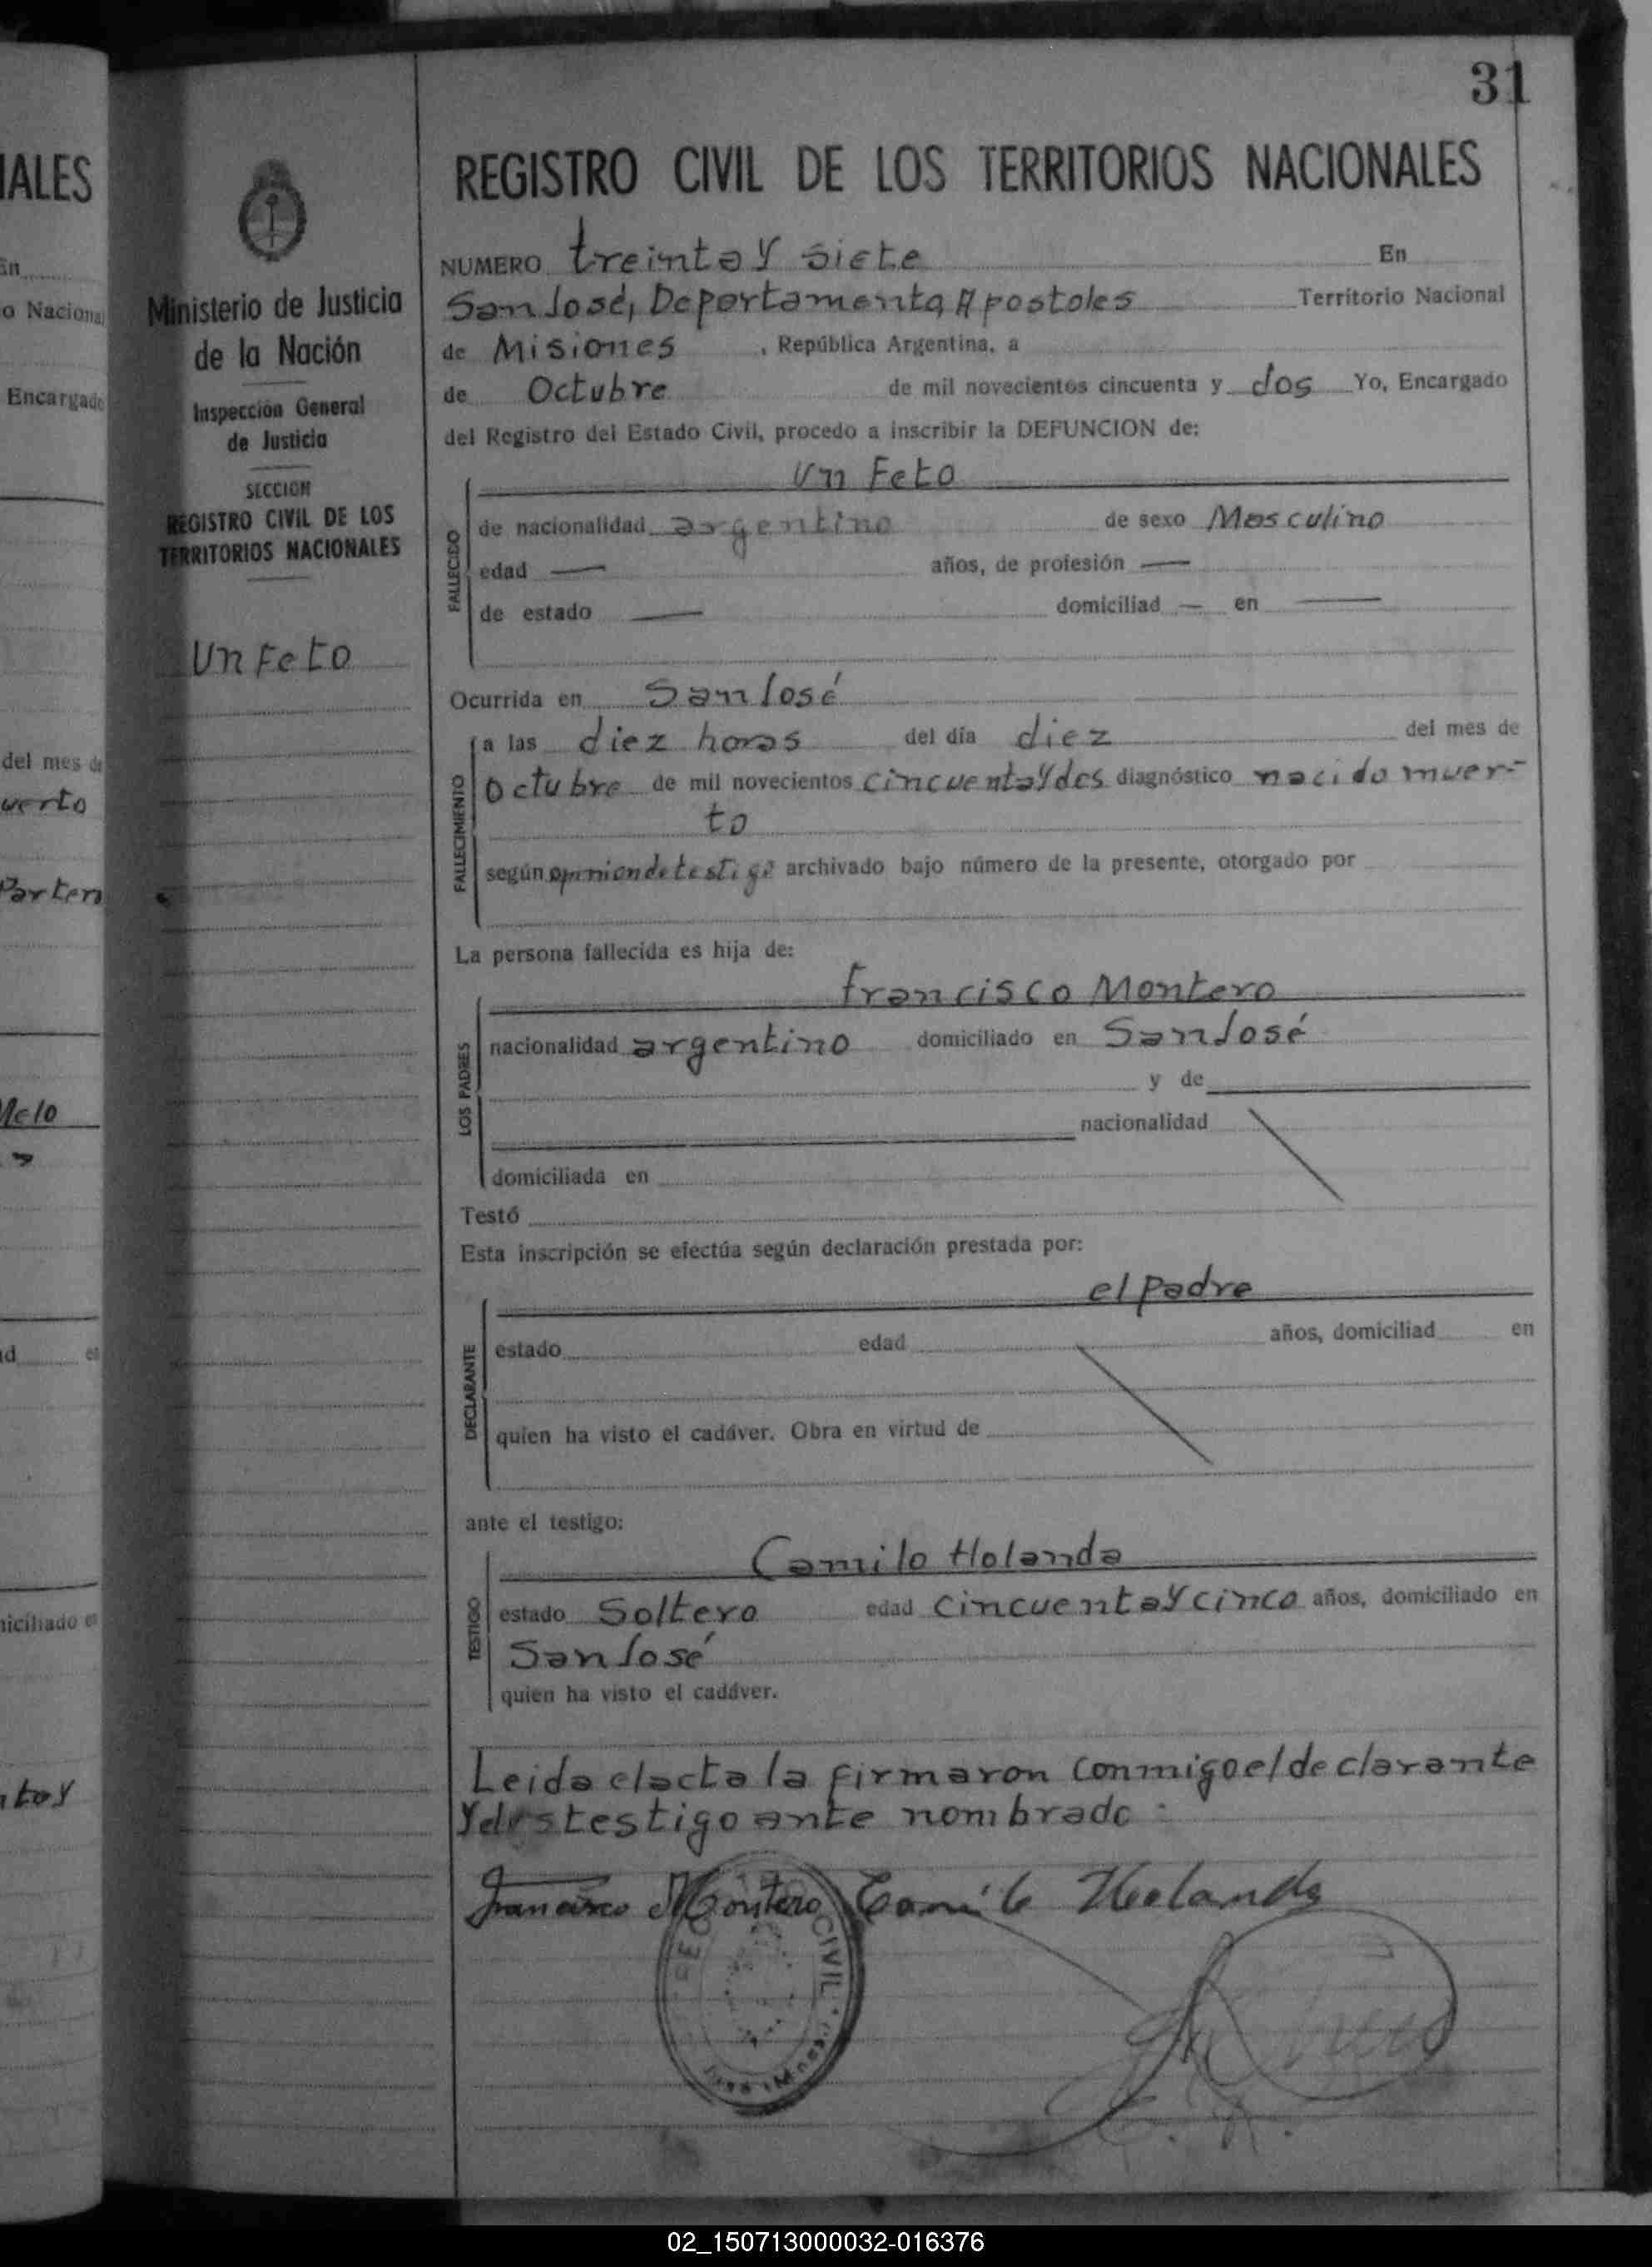 31
IALES
En
o Nacional
Encargado
del mes de
uerto
Parten
Melo
d el
iciliado en
to y
Ministerio de Justicia
de la Nación
Inspección General
de Justicia
SECCION
REGISTRO CIVIL DE LOS
TERRITORIOS NACIONALES
Un Feto
REGISTRO CIVIL DE LOS TERRITORIOS NACIONALES
NUMERO treinta y siete En
San José, Departamento, Apostoles Territorio Nacional
de Misiones, República Argentina, a
de Octubre de mil novecientos cincuenta y dos Yo, Encargado
del Registro del Estado Civil, procedo a inscribir la DEFUNCION de:
Un Feto
FALLECIDO
de nacionalidad argentino de sexo Masculino
edad — años, de profesión —
de estado — domiciliad — en —
Ocurrida en San José
FALLECIMIENTO
a las diez horas del día diez del mes de
Octubre de mil novecientos cincuenta y dos diagnóstico nacido muer-
to
según opinion de testigo archivado bajo número de la presente, otorgado por
La persona fallecida es hija de:
Francisco Montero
LOS PADRES
nacionalidad argentino domiciliado en San José
y de
nacionalidad
domiciliada en
Testó
Esta inscripción se efectúa según declaración prestada por:
el Padre
DECLARANTE
estado edad años, domiciliad en
quien ha visto el cadáver. Obra en virtud de
ante el testigo:
Camilo Holanda
TESTIGO
estado Soltero edad cincuenta y cinco años, domiciliado en
San José
quien ha visto el cadáver.
Leida el acta la firmaron conmigo el declarante
y testigo ante nombrado:
Francisco Montero Camilo Holanda
CIVIL
02_150713000032-016376